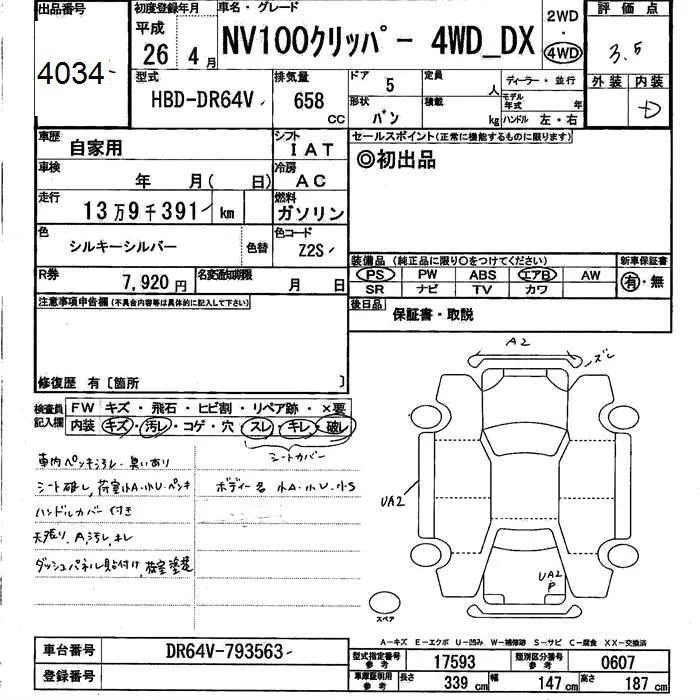 出品番号 初度登録年月 車名・グレード 2WD 評価点
平成 NV100クリッパー 4WD_DX ・
26年 4月 4WD 3.5
4034 型式 排気量 ドア 5 定員 人 ディーラー・並行 外装 内装
HBD-DR64V 658 CC 形状 バン 積載 kg モデル年式 年 D
ハンドル 左・右
車歴 自家用 シフト IAT セールスポイント(正常に機能するものに限ります)
車検 年 月( 日) 冷房 AC ◎初出品
走行 13万9千391 km 燃料 ガソリン
色 シルキーシルバー 色替 色コード Z2S
装備品 (純正品に限り○をつけてください) 新車保証書
R券 7,920円 名変通知期限 月 日 PS PW ABS エアB AW 有・無
SR ナビ TV カワ
注意事項申告欄(不具合内容等は具体的に記入して下さい) 後日品 保証書・取説
修復歴 有〔箇所 〕
A2
ズレ
検査員記入欄 FW キズ・飛石・ヒビ割・リペア跡・×要
内装 キズ・汚レ・コゲ・穴・スレ・キレ・破レ
シートカバー
車内ペンキ汚レ・臭いあり
シート破レ,荷室小A・小U・ペンキ ボディー名 小A・小U・小S
UA2
ハンドルカバー付き
天張り,A汚レ,キレ
ダッシュパネル貼付け,荷室塗装
UA2
P
スペア
A―キズ E―エクボ U―凹み W―補修跡 S―サビ C―腐食 XX―交換済
車台番号 DR64V-793563 型式指定番号 参考 17593 類別区分番号 参考 0607
登録番号 車庫証明用 参考 長さ 339cm 幅 147cm 高さ 187cm